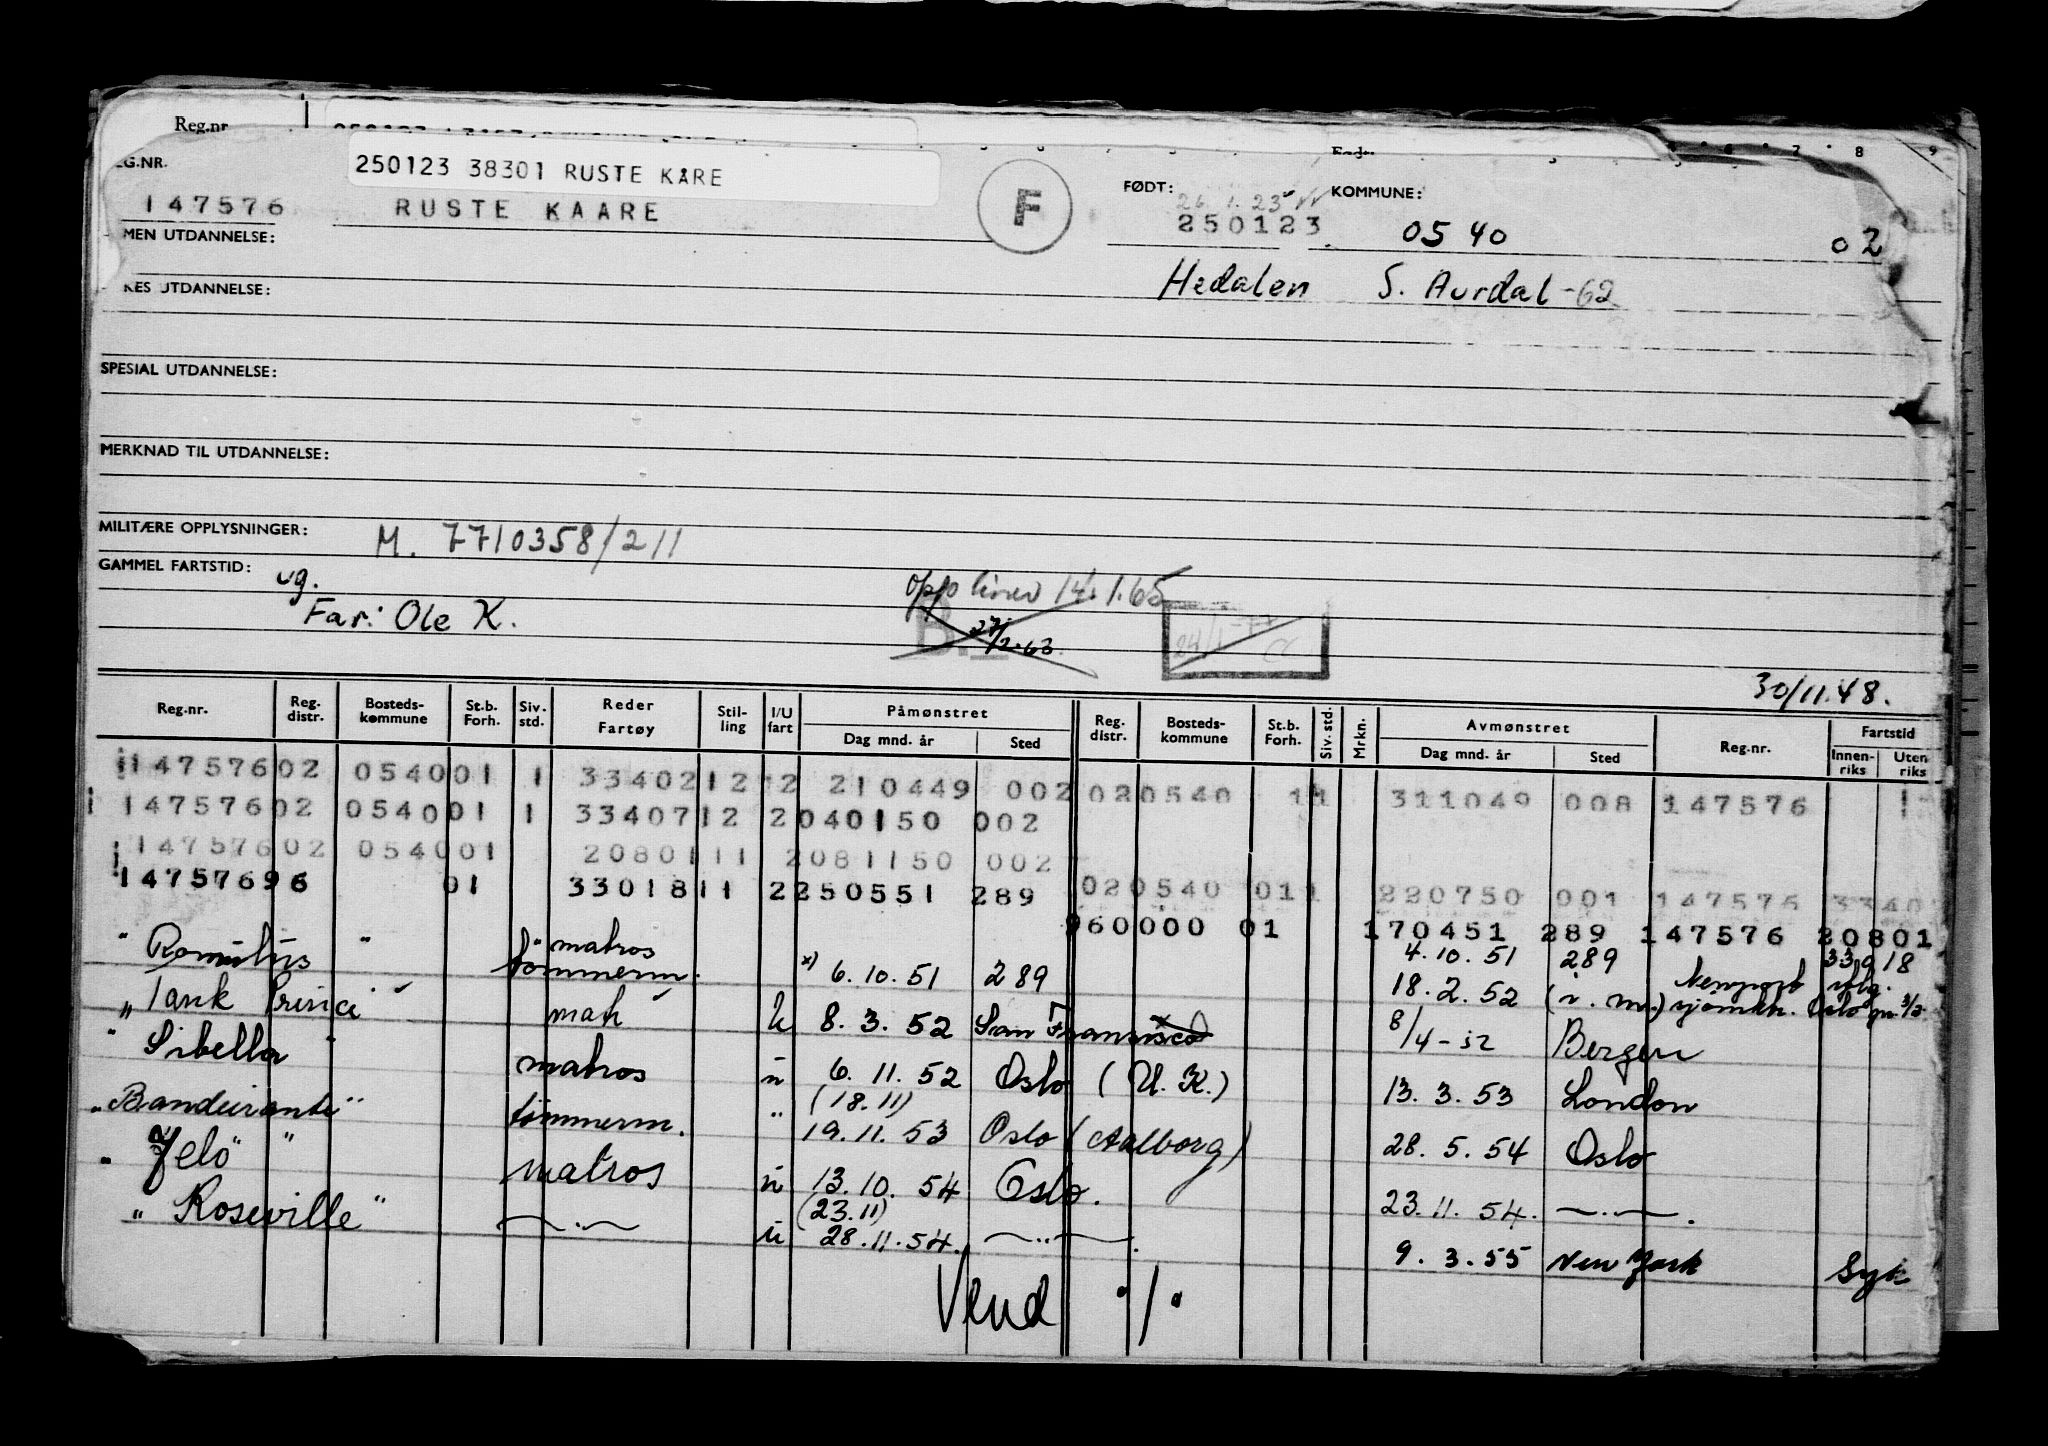 Reg.nr
250123 38301 RUSTE KÅRE
147576 RUSTE KAARE
F
FØDT: KOMMUNE:
26.1.23
250123 0540 02
MEN UTDANNELSE:
Hedalen S. Aurdal -62
KES UTDANNELSE:
SPESIAL UTDANNELSE:
MERKNAD TIL UTDANNELSE:
MILITÆRE OPPLYSNINGER: M. 7710358/211
GAMMEL FARTSTID: ug.
Far: Ole K.
14.1.65
27/2-63
30/11.48.
Reg.nr. Reg. distr. Bosteds-kommune St.b. Forh. Siv. std. Reder Fartøy Stil-ling I/U fart Påmønstret Dag mnd. år Sted Reg. distr. Bosteds-kommune St.b. Forh. Siv. std. Mrkn. Avmønstret Dag mnd. år Sted Reg.nr. Fartstid Innen-riks Uten riks
147576 02 0540 01 1 33402 12 2 210449 002 02 0540 11 311049 008 147576
147576 02 0540 01 1 33407 12 2 040150 002
147576 02 0540 01 20801 11 2 081150 002 02 0540 01 1 220750 001 147576 3340
147576 96 01 33018 11 2 250551 289 960000 01 170451 289 147576 20801
matros 4.10.51 289 33018
" Romulus " tømmerm. x) 6.10.51 289 18.2.52 Newport
„ Tank Princi mat U 8.3.52 San Fransisco 8/4-52 Bergen
" Sibella " matros u 6.11.52 Oslo (U.K.) 13.3.53 London
(18.11)
„ Bandeirante " tømmerm. " 19.11.53 Oslo (Aalborg) 28.5.54 Oslo
" Jelö " matros u 13.10.54 Oslo. 23.11.54.
(23.11)
" Roseville " u 28.11.54. 9.3.55 New York Syk
Vend "/"